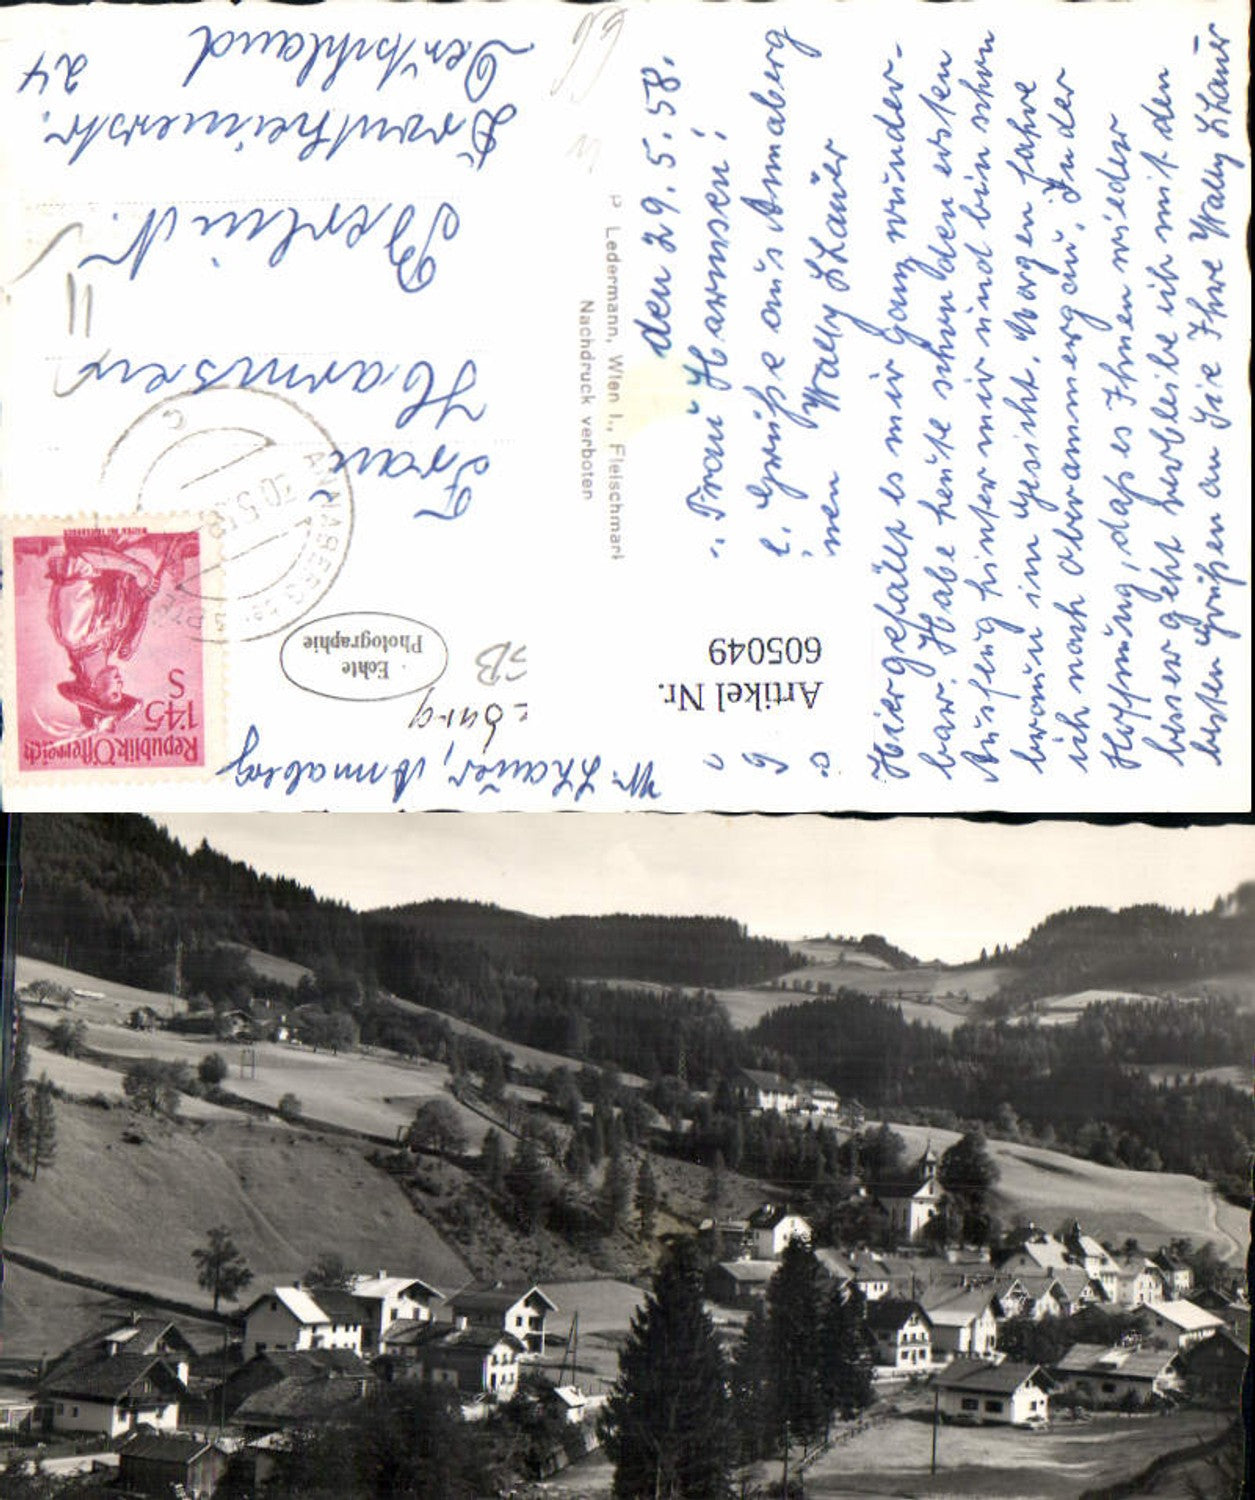 den 29. 5. 58.
Frau Harmsen!
Grüße aus Annaberg
nen Wally
Hier gefällt es mir ganz wunder-
bar. Habe heute schon den ersten
Ausflug hinter mir und bin schon
braun im Gesicht. Morgen fahre
ich nach Oberammergau. In der
Hoffnung, daß es Ihnen wieder
besser geht verbleibe ich mit den
besten Grüßen an Sie Ihre Wally
Artikel Nr.
605049
P. Ledermann, Wien I., Fleischmarkt
Nachdruck verboten
Annaberg
Echte
Photographie
Republik Österreich
1'45
S
ANNABERG
30.5.58
Frau
Harmsen
Berlin N.
Drontheimerstr.
24
Deutschland